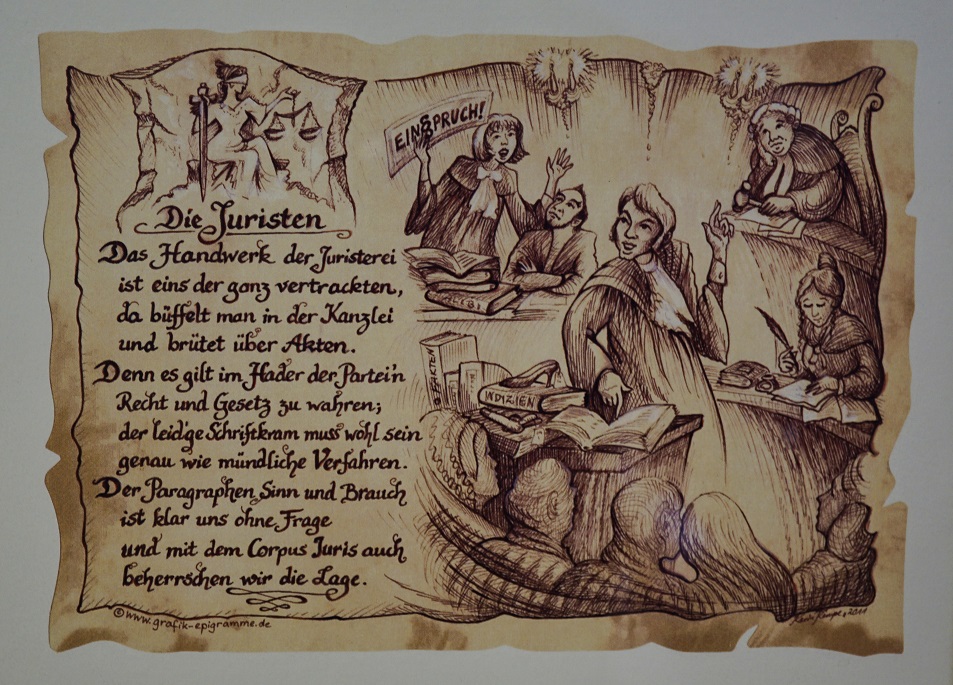 EIN§PRUCH!
Die Juristen
Das Handwerk der Juristerei
ist eins der ganz vertrackten,
da büffelt man in der Kanzlei
und brütet über Akten.
Denn es gilt im Hader der Partei'n
Recht und Gesetz zu wahren;
der leid'ge Schriftkram muss wohl sein
genau wie mündliche Verfahren.
Der Paragraphen Sinn und Brauch
ist klar uns ohne Frage
und mit dem Corpus Juris auch
beherrschen wir die Lage.
FAKTEN
INDIZIEN
©www.grafik-epigramme.de
2011